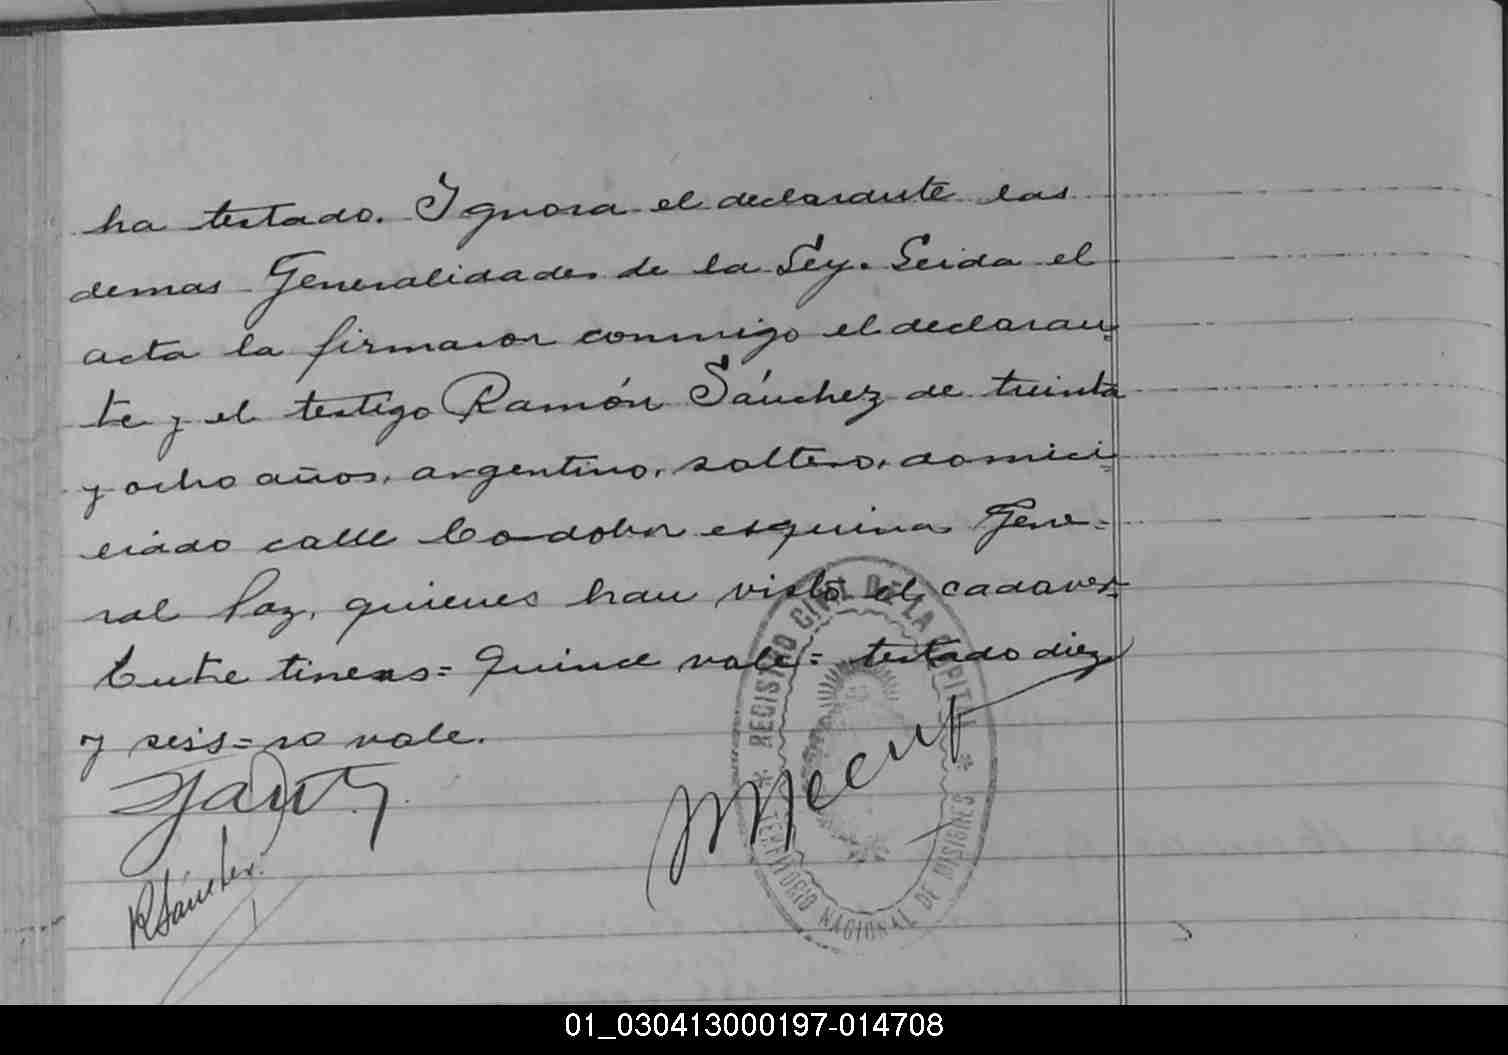 ha testado. Ignora el declarante las
demas Generalidades de la Ley. Leida el
acta la firmaron conmigo el declaran-
te y el testigo Ramón Sánchez de treinta
y ocho años, argentino, soltero, domici-
liado calle Cordoba esquina Gene-
ral Paz, quienes han visto el cadaver.
Entre lineas = quince vale = testado diez
y seis = no vale.
RSánchez
REGISTRO CIVIL DE LA CAPITAL
* TERRITORIO NACIONAL DE MISIONES *
01_030413000197-014708